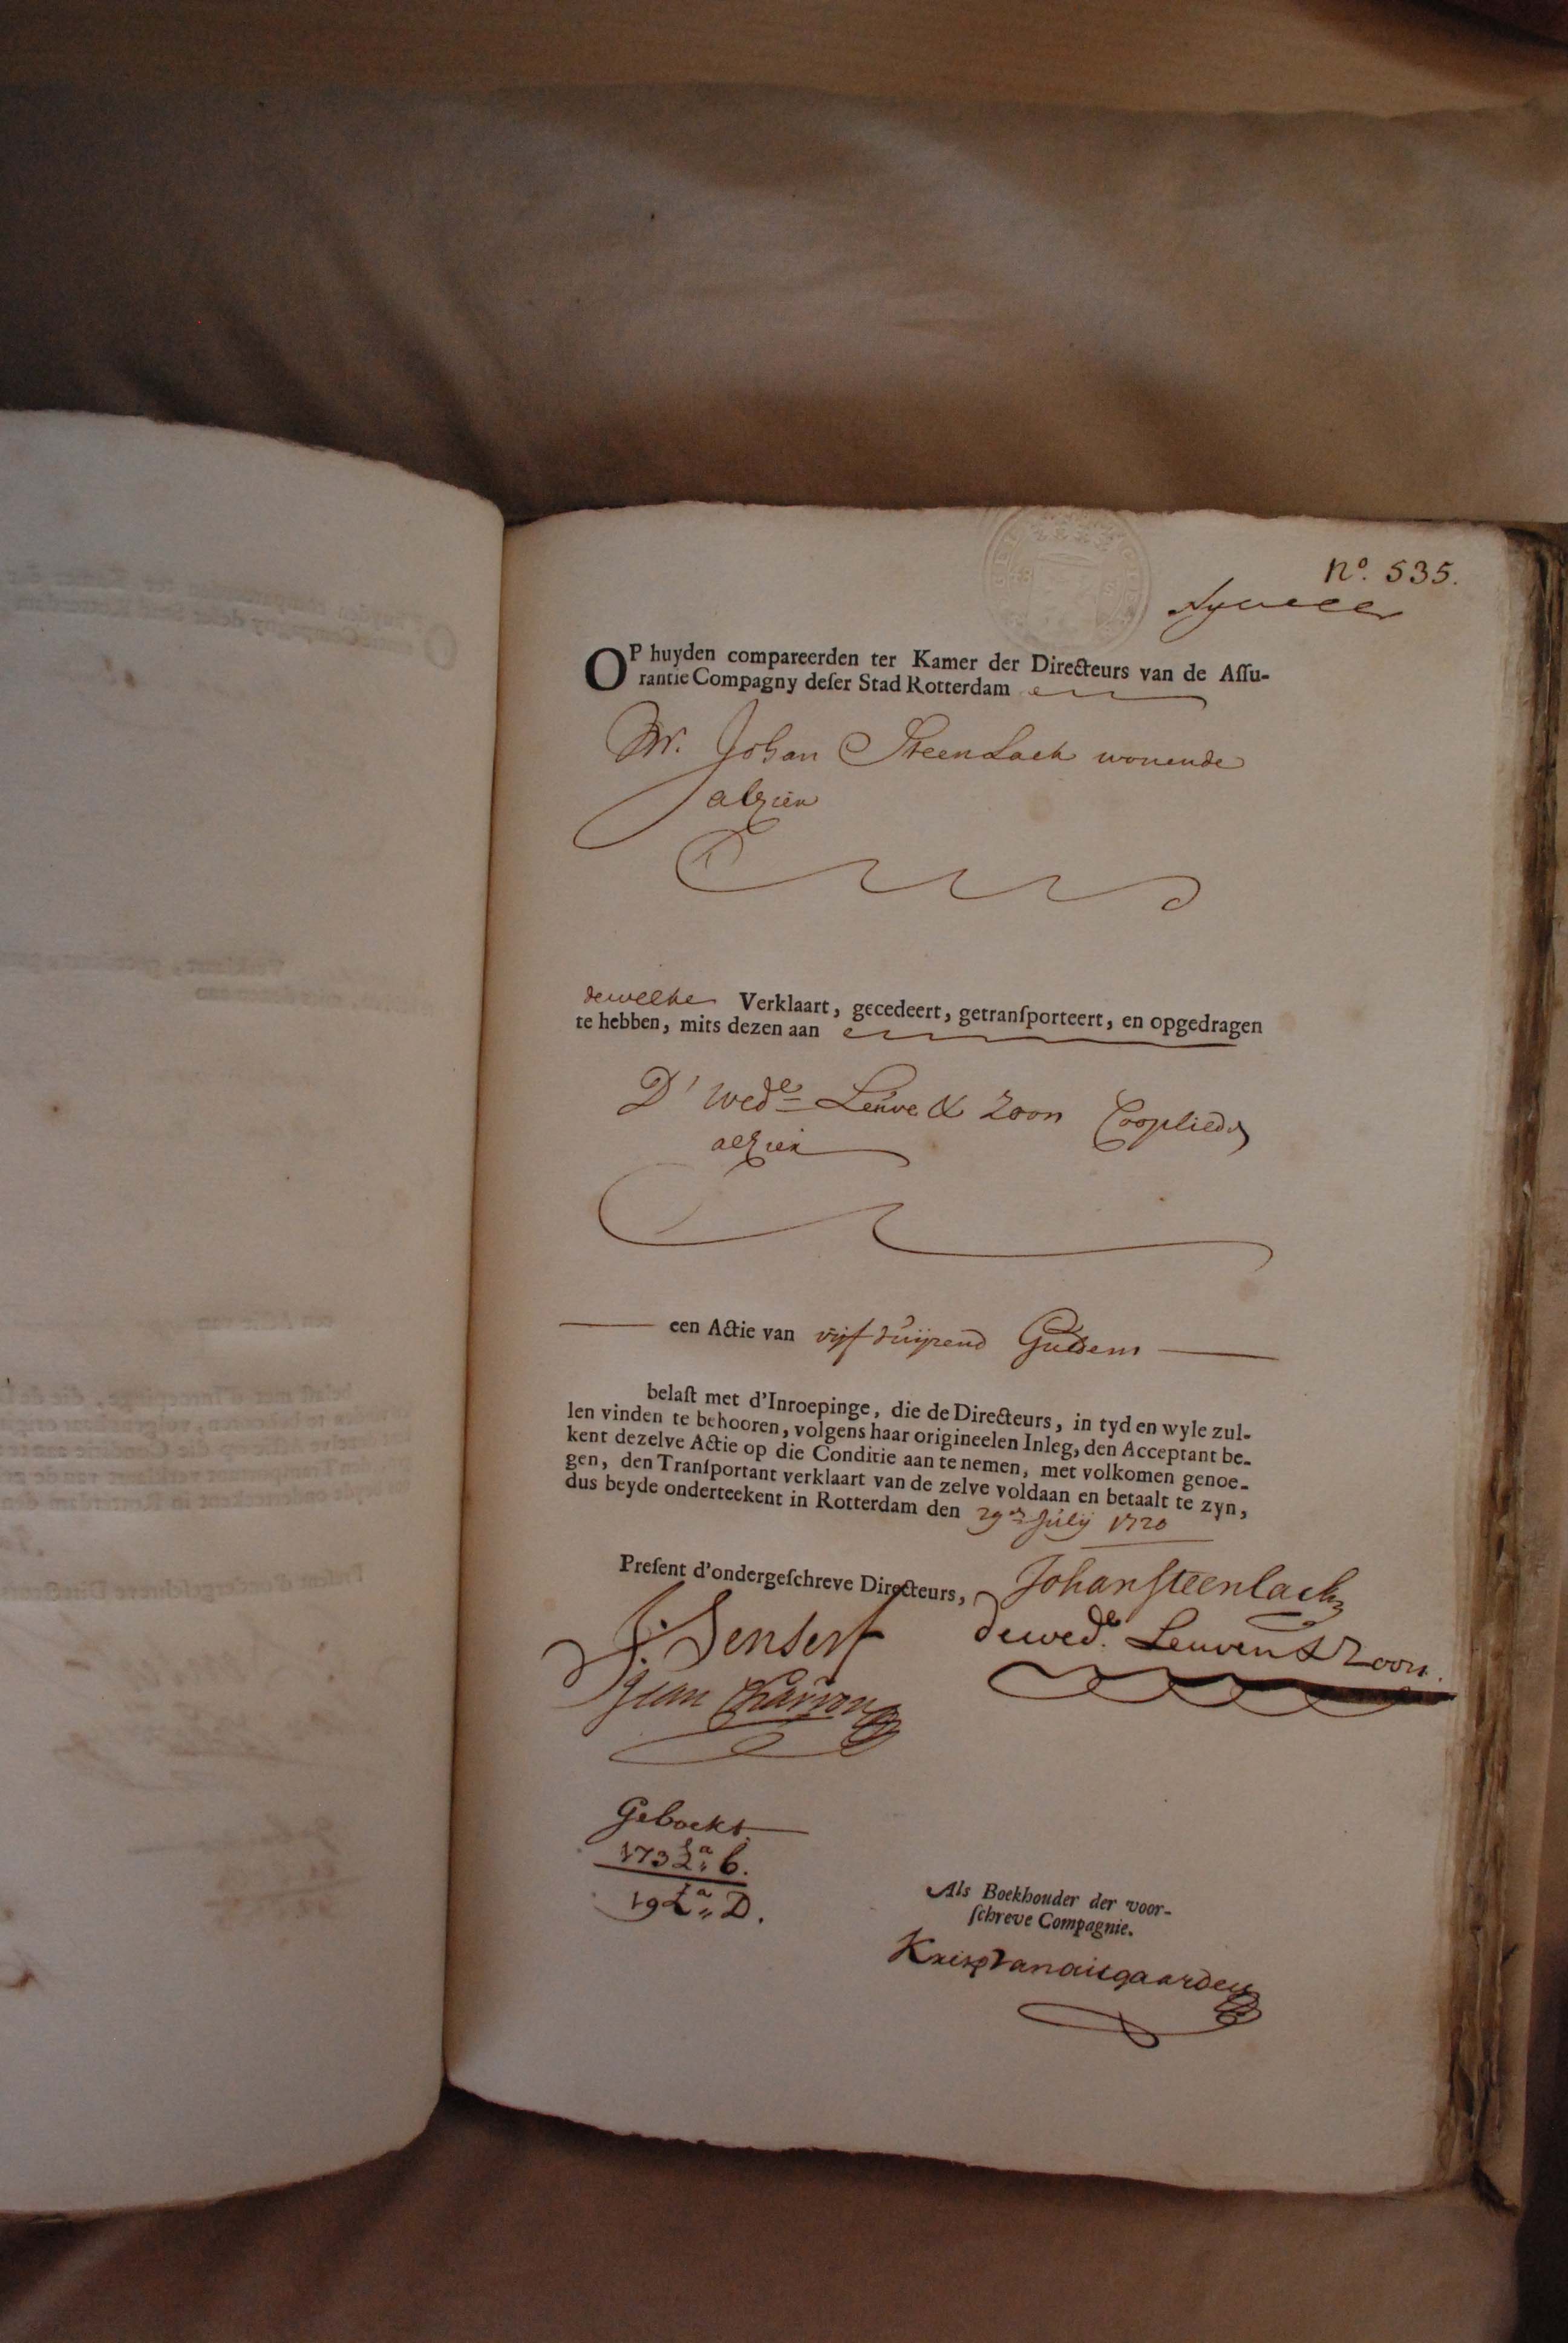 Nº. 535.
OP huyden compareerden ter Kamer der Directeurs van de Aſſu-
rantie Compagny deſer Stad Rotterdam
Mr. Johan Steenlack wonende
alhier
dewelke Verklaart, gecedeert, getranſporteert, en opgedragen
te hebben, mits dezen aan
D' wede Leuve & Zoon Cooplieden
alhier
een Actie van vijf duijzend Guldens
belaſt met d'Inroepinge, die de Directeurs, in tyd en wyle zul-
len vinden te behooren, volgens haar origineelen Inleg, den Acceptant be-
kent dezelve Actie op die Conditie aan te nemen, met volkomen genoe-
gen, den Tranſportant verklaart van de zelve voldaan en betaalt te zyn,
dus beyde onderteekent in Rotterdam den 29en Julij 1720
Preſent d'ondergeſchreve Directeurs,
Johan Steenlack
J: Senserf
de wede. Leuven & Zoon.
Jean
Geboekt
173 La: C.
19 La: D.
Als Boekhouder der voor-
ſchreve Compagnie.